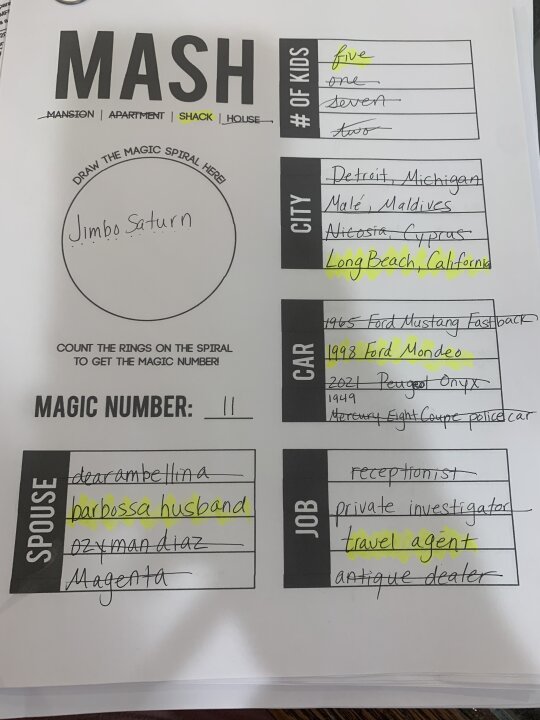 MASH
MANSION | APARTMENT | SHACK | HOUSE
DRAW THE MAGIC SPIRAL HERE!
Jimbo Saturn
COUNT THE RINGS ON THE SPIRAL
TO GET THE MAGIC NUMBER!
MAGIC NUMBER: 11
SPOUSE
dearambellina
barbossa husband
ozymandiaz
Magenta
# OF KIDS
five
one
seven
two
CITY
Detroit, Michigan
Malé, Maldives
Nicosia, Cyprus
Long Beach, California
CAR
1965 Ford Mustang Fastback
1998 Ford Mondeo
2021 Peugeot Onyx
1949
Mercury Eight Coupe police car
JOB
receptionist
private investigator
travel agent
antique dealer